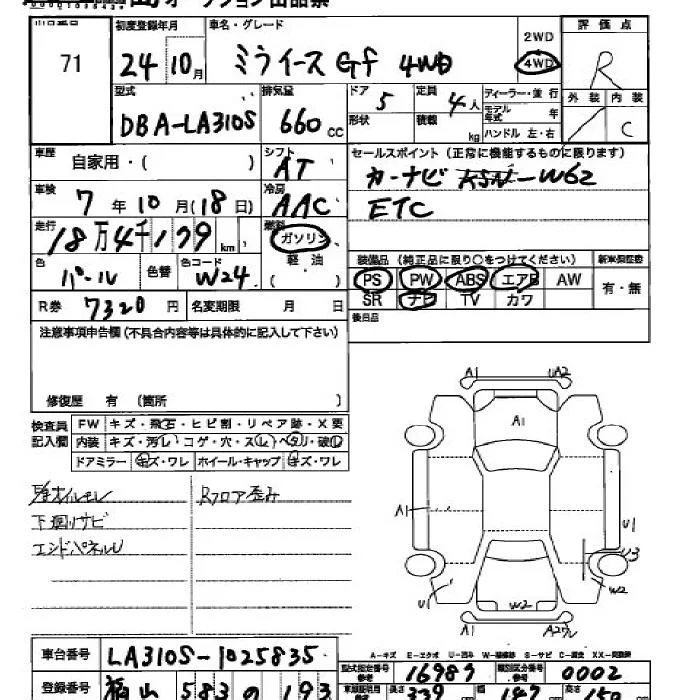 初度登録年月 車名・グレード 評価点
71 24年10月 ミライース Gf 4WD 2WD 4WD R
型式 排気量 ドア 定員 ディーラー・並行 外装 内装
DBA-LA310S 660cc 5 4人 モデル年式 年 C
形状 積載 kg ハンドル 左・右
車歴 自家用・( ) シフト AT セールスポイント(正常に機能するものに限ります)
車検 7年10月(18日) 冷房 AAC カーナビ -W62
ETC
走行 18万4千179km 燃料 ガソリン
軽油
( )
色 パール 色替 色コード W24 装備品(純正品に限り○をつけてください) 新車保証書
PS PW ABS エアB AW 有・無
R券 7320円 名変期限 月 日 SR ナビ TV カワ
後日品
注意事項申告欄(不具合内容等は具体的に記入して下さい)
修復歴 有(箇所 )
検査員記入欄 FW キズ・飛石・ヒビ割・リペア跡・X要
内装 キズ・汚レ・コゲ・穴・スレ・ベタリ・破レ
ドアミラー キズ・ワレ ホイール・キャップ キズ・ワレ
オイルモレ Rフロア歪み
下廻りサビ
エンドパネルU
A1 UA2
A1
A1 U1
U3
U1 W2 W2
A1
A-キズ E-エクボ U-凹み W-補修跡 S-サビ C-腐食 XX-交換済
車台番号 LA310S-1025835 型式指定番号 参考 16989 類別区分番号 参考 0002
登録番号 福山 583 の 193 長さ 339 幅 147 高さ